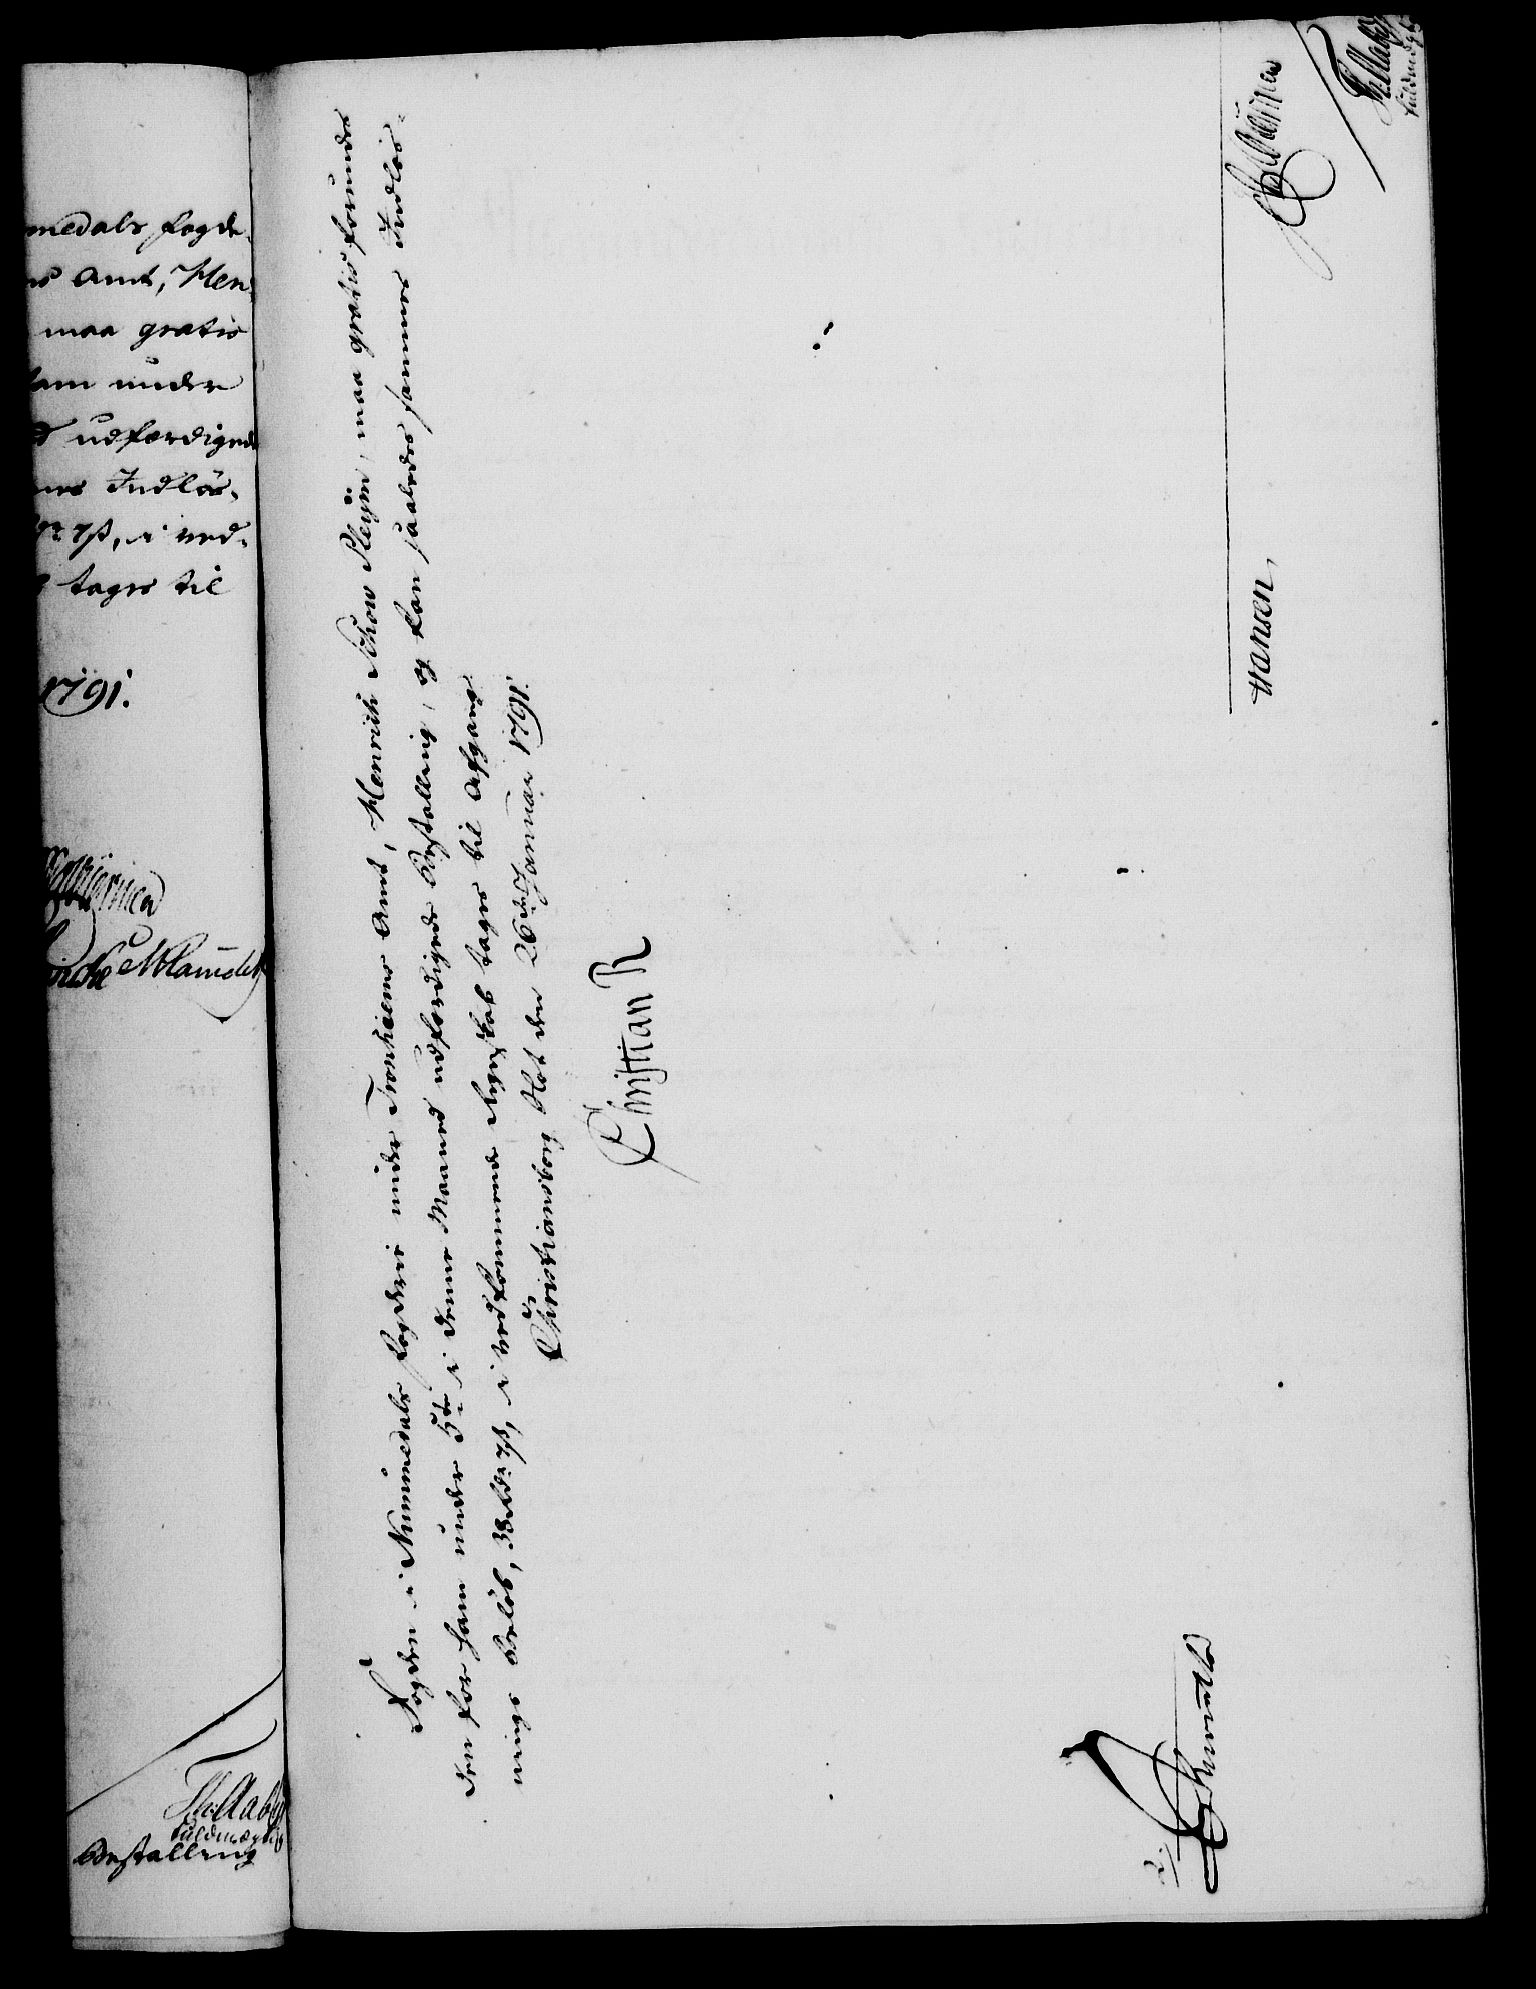 medals Fogde-
Amt, Hen-
maa gratis
ham under
udfærdigede
Indløs-
7ß, i ved-
tages til
1791.
Th: Aaby
fuldmægtig
Bestalling
Fogden i Nummedals Fogderie under Tronhiems Amt, Henrich Schow Pleÿm, maa gratis forundes
den for ham under 5te i denne Maaned udfærdigede Bestalling, og kan saaledes sammes Indløs-
nings Beløb, 38 Rdr 7ß, i vedkommende Regnskab tages til Afgang
Christiansborg Slot den 26de Januar 1791.
Christian R
Hansen,
Th: Aaby
fuldmægtig